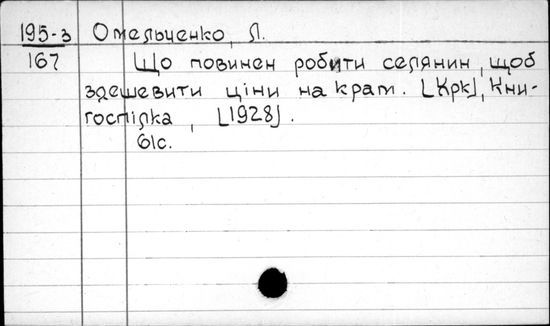 195-з Омельченко, Л.
167 Що повинен робити селянин, щоб
здешевити ціни на крам. [Хрк], Кни-
госпілка, [1928].
61с.